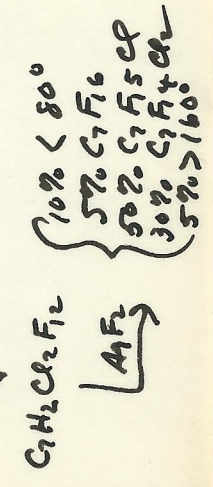 C7H2Cl2F12
AgF2
10% < 80°
5% C7F16
50% C7F15Cl
30% C7F14Cl2
5% > 160°